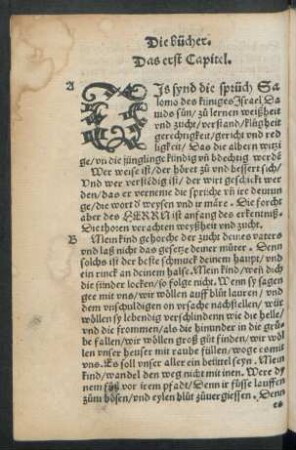 Die bücher.
Das erst Capitel.
A DJs synd die sprüch Sa
lomo des küniges Israel Da
uids sün/ zü lernen weißheit
vnd zucht/ verstand/ klügheit
gerechtigkeit/ gericht vnd red
ligkeit/ Das die albern witzi
ge/ vñ die jünglinge kündig vñ bdechtig werdē
Wer weise ist/ der höret zü vnd bessert sich/
Vnd wer verstēdig ist/ der wirt geschickt wer
den/ das er verneme die sprüche vñ ire deutun
ge/ die wort d̕ weysen vnd ir märe. Die forcht
aber des HERRN ist anfang des erkentnuß.
Die thoren verachten weyßheit vnd zucht.
B Mein kind gehorche der zucht deines vaters
vnd laß nicht das gesetze deiner müter. Denn
solchs ist der beste schmuck deinem haupt/ vnd
ein rinck an deinem halse. Mein kind/ wen dich
die sünder locken/ so folge nicht. Wenn sy sagen
gee mit vns/ wir wöllen auff blüt lauren/ vnd
dem vnschuldigen on vrsache nachstellen/ wir
wöllen sy lebendig verschlinden wie die helle/
vnd die frommen/ als die hinunder in die grü-
be fallen/ wir wöllen groß güt finden/ wir wöl
len vnser heuser mit raube füllen/ woge es mit
vns. Es soll vnser aller ein beüttel seyn. Mein
kind/ wandel den weg nicht mit inen. Were dy
nem füß vor irem pfadt/ Denn ir füsse lauffen
züm bösen/ vnd eylen blüt züuergiessen. Denn
es